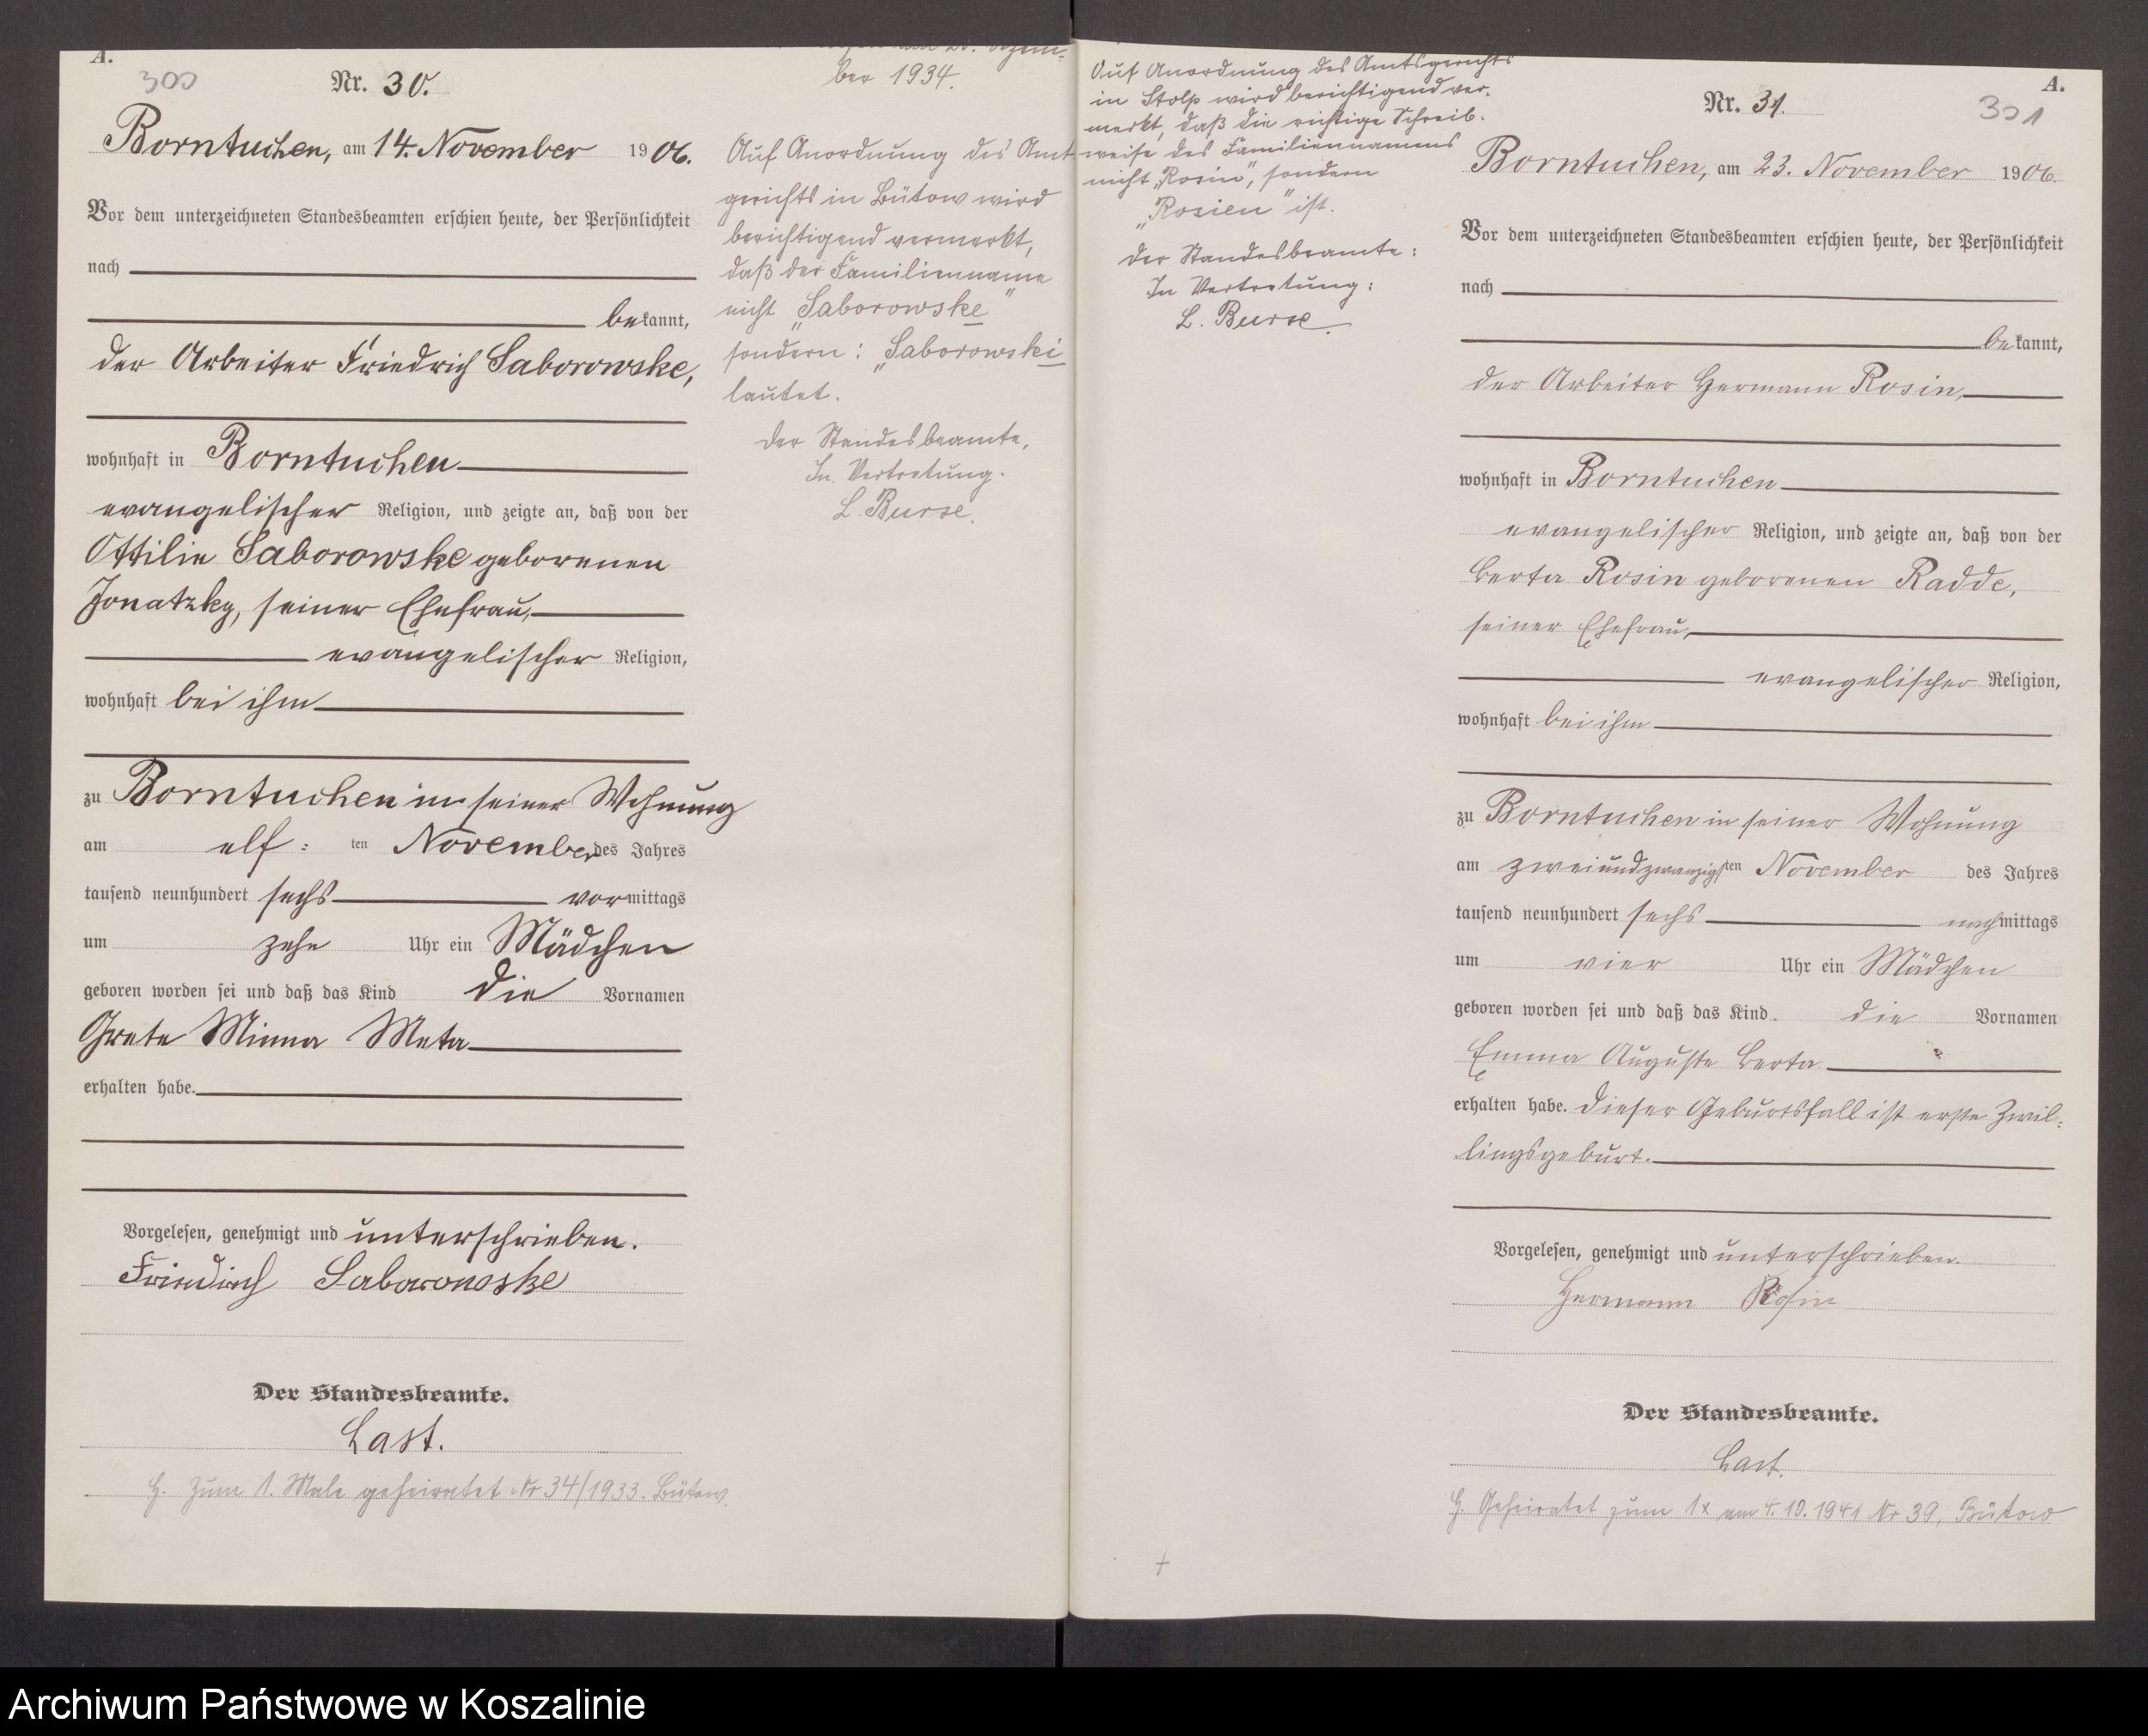 A.
300
Nr. 30.
Borntuchen, am 14. November 1906.
Vor dem unterzeichneten Standesbeamten erschien heute, der Persönlichkeit
nach
bekannt,
der Arbeiter Friedrich Saborowske,
wohnhaft in Borntuchen
evangelischer Religion, und zeigte an, daß von der
Ottilie Saborowske geborenen
Jonatzky, seiner Ehefrau,
evangelischer Religion,
wohnhaft bei ihm
zu Borntuchen in seiner Wohnung
am elf: ten November des Jahres
tausend neunhundert sechs vormittags
um zehn Uhr ein Mädchen
geboren worden sei und daß das Kind die Vornamen
Grete Minna Meta
erhalten habe.
Vorgelesen, genehmigt und unterschrieben.
Friedrich Saborowske
Der Standesbeamte.
Last.
H. Zum 1. Male geheiratet Nr 34/1933. Bütow.
ber 1934.
Auf Anordnung des Amt-
gerichts in Bütow wird
berichtigend vermerkt,
daß der Familienname
nicht „Saborowske"
sondern: „Saborowski
lautet.
Der Standesbeamte.
In Vertretung.
L. Burse.
Auf Anordnung des Amtsgerichts
in Stolp wird berichtigend ver-
merkt, daß die richtige Schreib-
weise des Familiennamens
nicht „Rosin", sondern
„Rosien" ist.
Der Standesbeamte:
In Vertretung:
L. Burse.
A.
Nr. 31.
301
Borntuchen, am 23. November 1906.
Vor dem unterzeichneten Standesbeamten erschien heute, der Persönlichkeit
nach
bekannt,
der Arbeiter Hermann Rosin,
wohnhaft in Borntuchen
evangelischer Religion, und zeigte an, daß von der
Berta Rosin geborenen Radde,
seiner Ehefrau,
evangelischer Religion,
wohnhaft bei ihm
zu Borntuchen in seiner Wohnung
am zweiundzwanzigsten November des Jahres
tausend neunhundert sechs nachmittags
um vier Uhr ein Mädchen
geboren worden sei und daß das Kind die Vornamen
Emma Auguste Berta
erhalten habe. Dieser Geburtsfall ist erste Zwil-
lingsgeburt.
Vorgelesen, genehmigt und unterschrieben.
Hermann Rosin
Der Standesbeamte.
Last.
H. Geheiratet zum 1x am 4.10.1941 Nr 39, Bütow
Archiwum Państwowe w Koszalinie